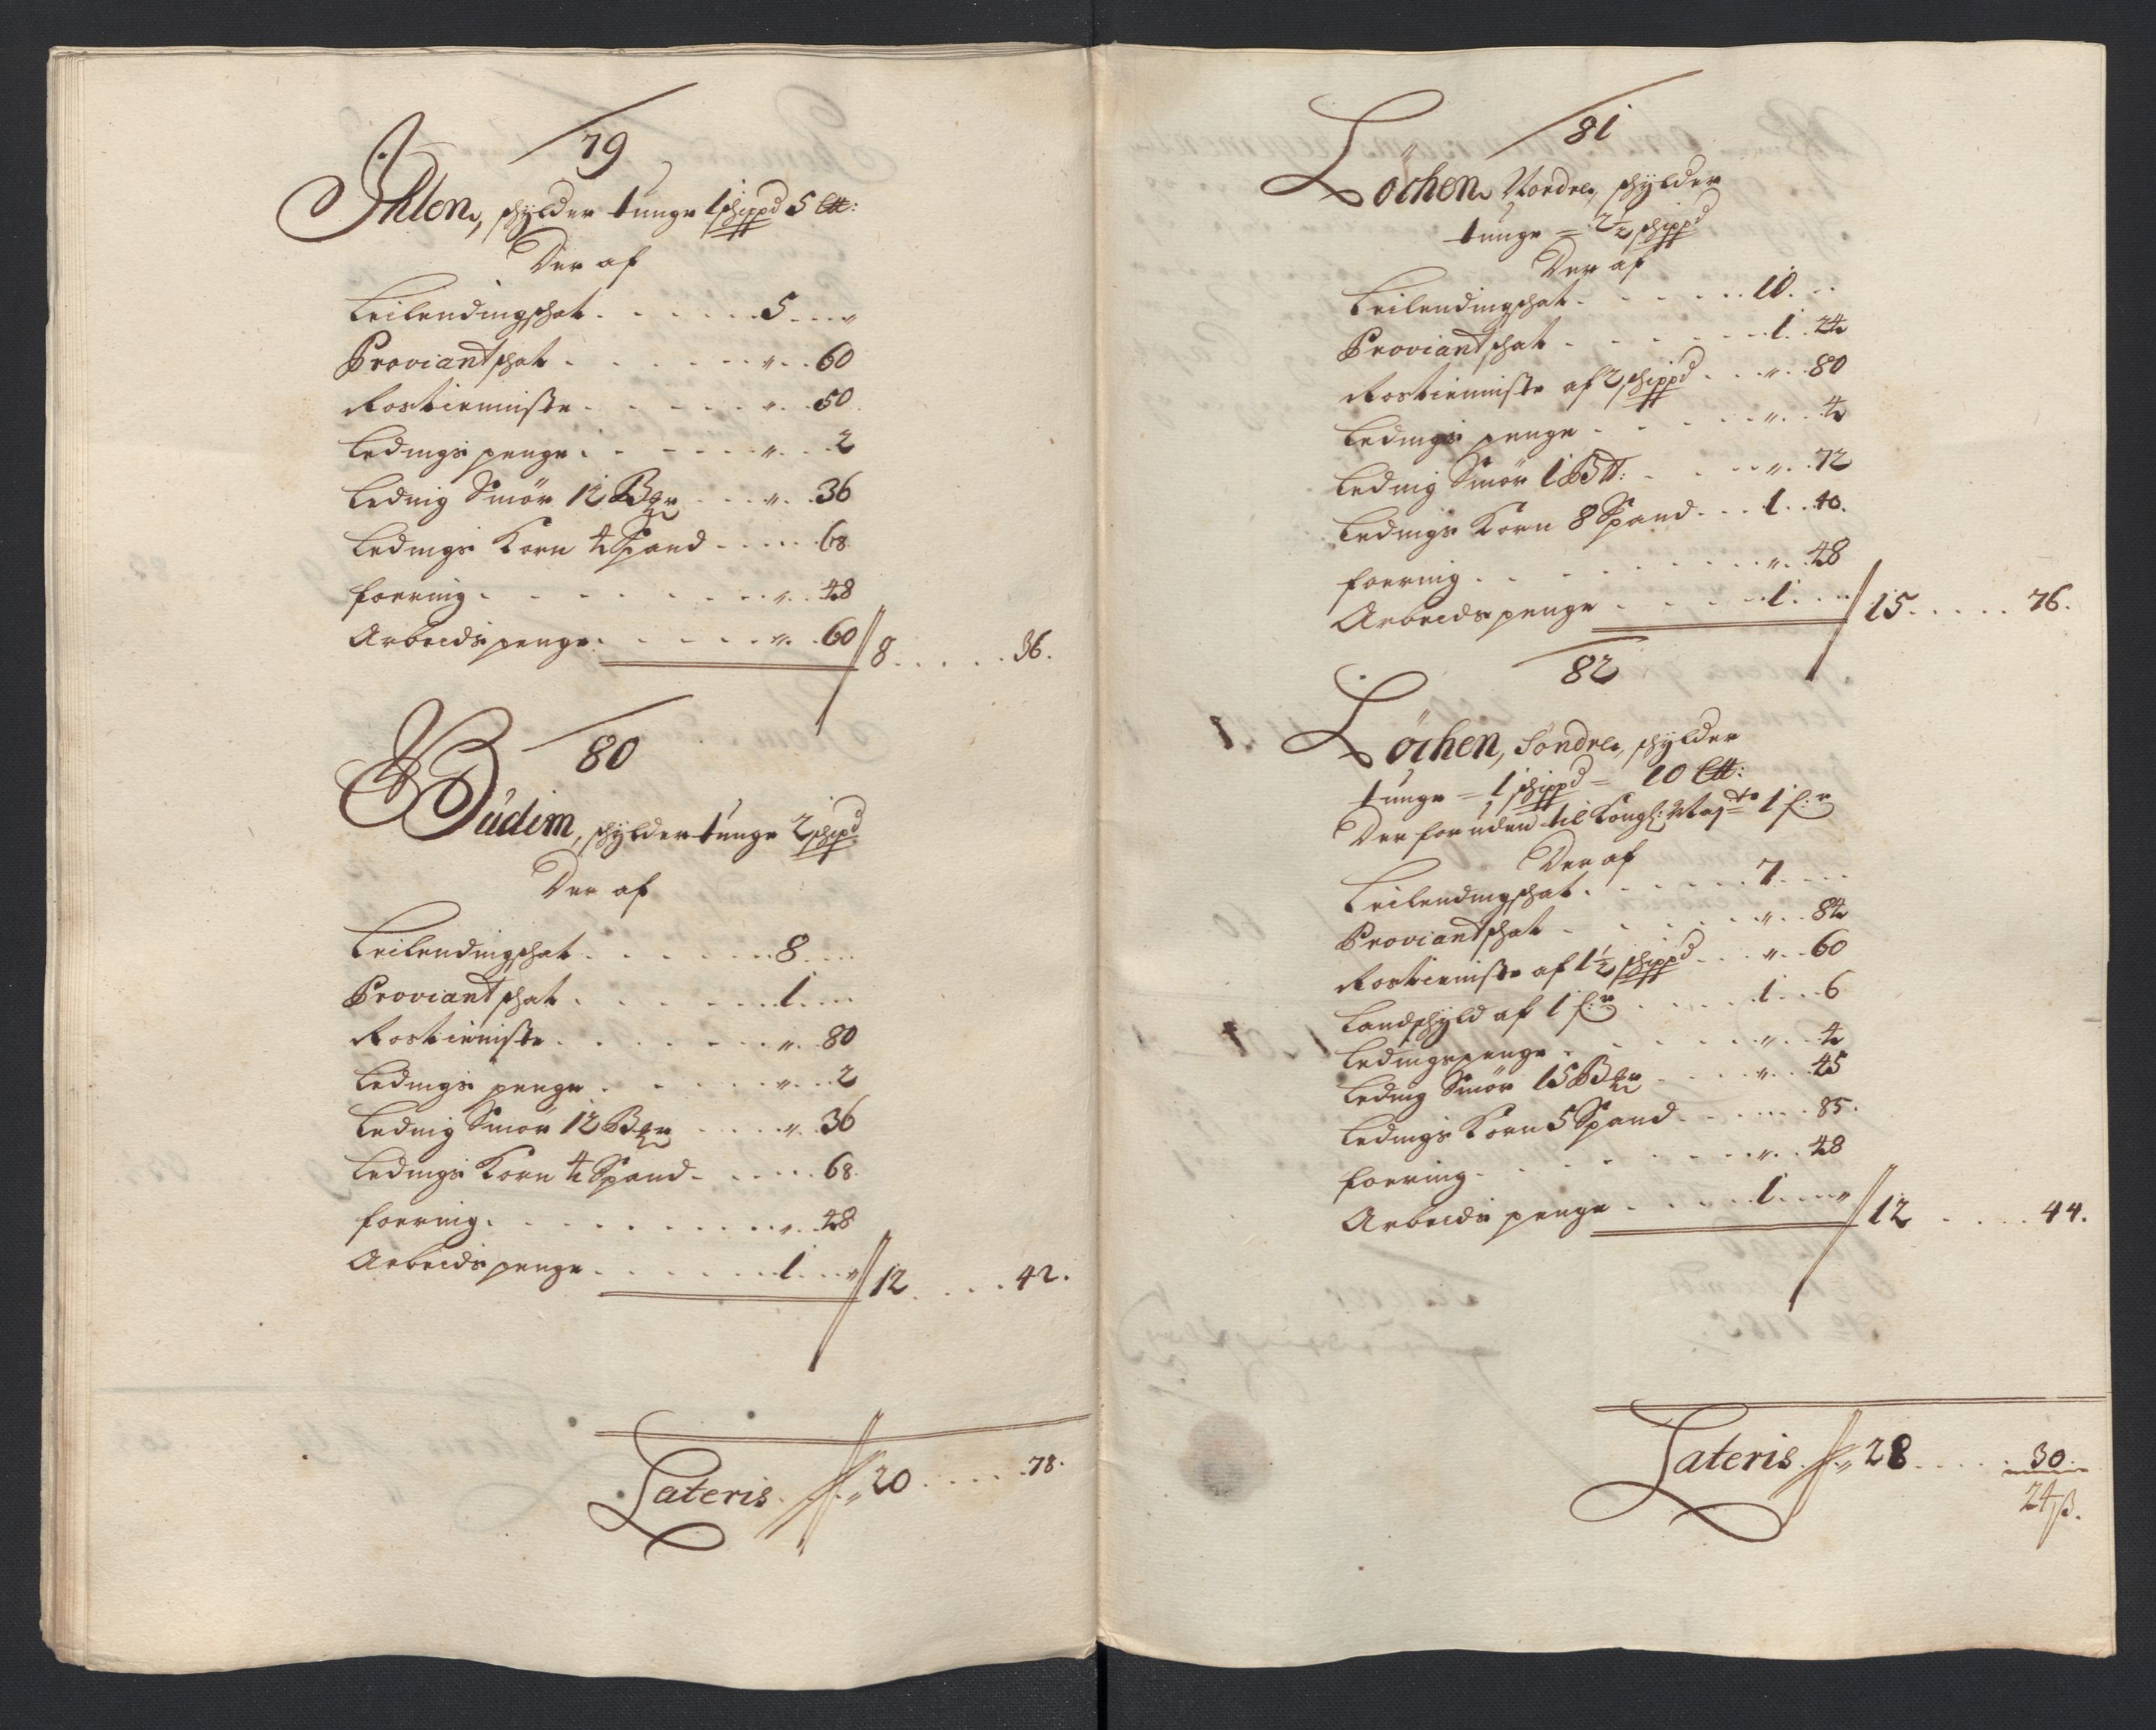 79
Ihlen, schylder tunge 1 schippd 5 L℔:
Der af
Leilendingschat . . . . . . 5 . . . "
Proviantschat . . . . . . " . . 60
Rostienniste . . . . . . " . . 50
Ledings penge . . . . . . " . . 2
Leding Smør 12 Bger . . . " . . 36
Ledings Korn 4 Spand . . . . . 68.
foering . . . . . . . . " . . 48
Arbeids penge . . . . . . " . . 60 // 8 . . . . . 36.
80
Büdim, schylder tunge 2 schipd
Der af
Leilendingschat . . . . . . 8 . . .
Proviantschat . . . . . . 1 . . .
Rostienniste . . . . . . " . . 80
Ledings penge . . . . . . " . . 2
Leding Smør 12 Bger . . . . " . . 36
Ledings Korn 4 Spand . . . . . 68.
foering . . . . . . . . . " . . 48
Arbeids penge . . . . . . 1 . . . " // 12 . . . . 42.
Lateris . // " 20 . . . . . 78.
81
Löchen Nordre, schylder
tunge = 2½ schippd
Der af
Leilendingschat . . . . . . 10 . . .
Proviantschat . . . . . . 1 . . 24
Rostienniste af 2 schippd . . . " . . 80
Ledings penge . . . . . . " . . 4
Leding Smør 1 B℔: . . . . " . . 72
Ledings Korn 8 Spand . . . 1 . . 40.
foering . . . . . . . . " . . 48
Arbeids penge . . . . . . 1 . . . // 15 . . . . . 76.
82
Löchen, Söndre, schylder
tunge = 1 schippd = 10 L℔:
Der foruden til Kongl: Majts 1 f:r
Der af
Leilendingschat . . . . . . 7 . . . .
Proviantschat . . . . . . " . . 84
Rostienniste af 1½ schippd . . . " . . 60
Landschyld af 1 f:r . . . . . 1 . . . 6
Ledingspenge . . . . . . " . . 4
Leding Smør 15 Bger . . . . " . . 45
Ledings Korn 5 Spand . . . . . . 85.
foering . . . . . . . . " . . 48
Arbeids penge . . . . . 1 . . . " // 12 . . . . . 44.
Lateris . // " 28 . . . . . 30.
24 ß.